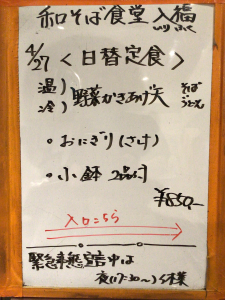 和そば食堂 入福
4/27 〈日替定食〉
温)
冷) 野菜かきあげ天 そば うどん
・おにぎり(さけ)
・小鉢 2品付
¥850-
入口こちら
緊急事態宣言中は
夜(17:30〜)休業